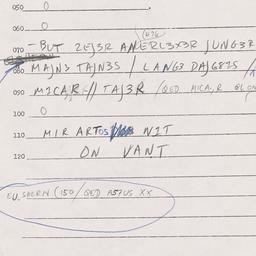 050 0
060 0
070 -BUT ZEJ3R ANERL3X3R JUNG3R
080 MAJN3 TAJN3S / LANG3 DAJG82S /
090 MICA,R // TAJ3R /QED MICA,R
100 0
110 MIR ARTOS NIT
120 ON VANT
(150/QED